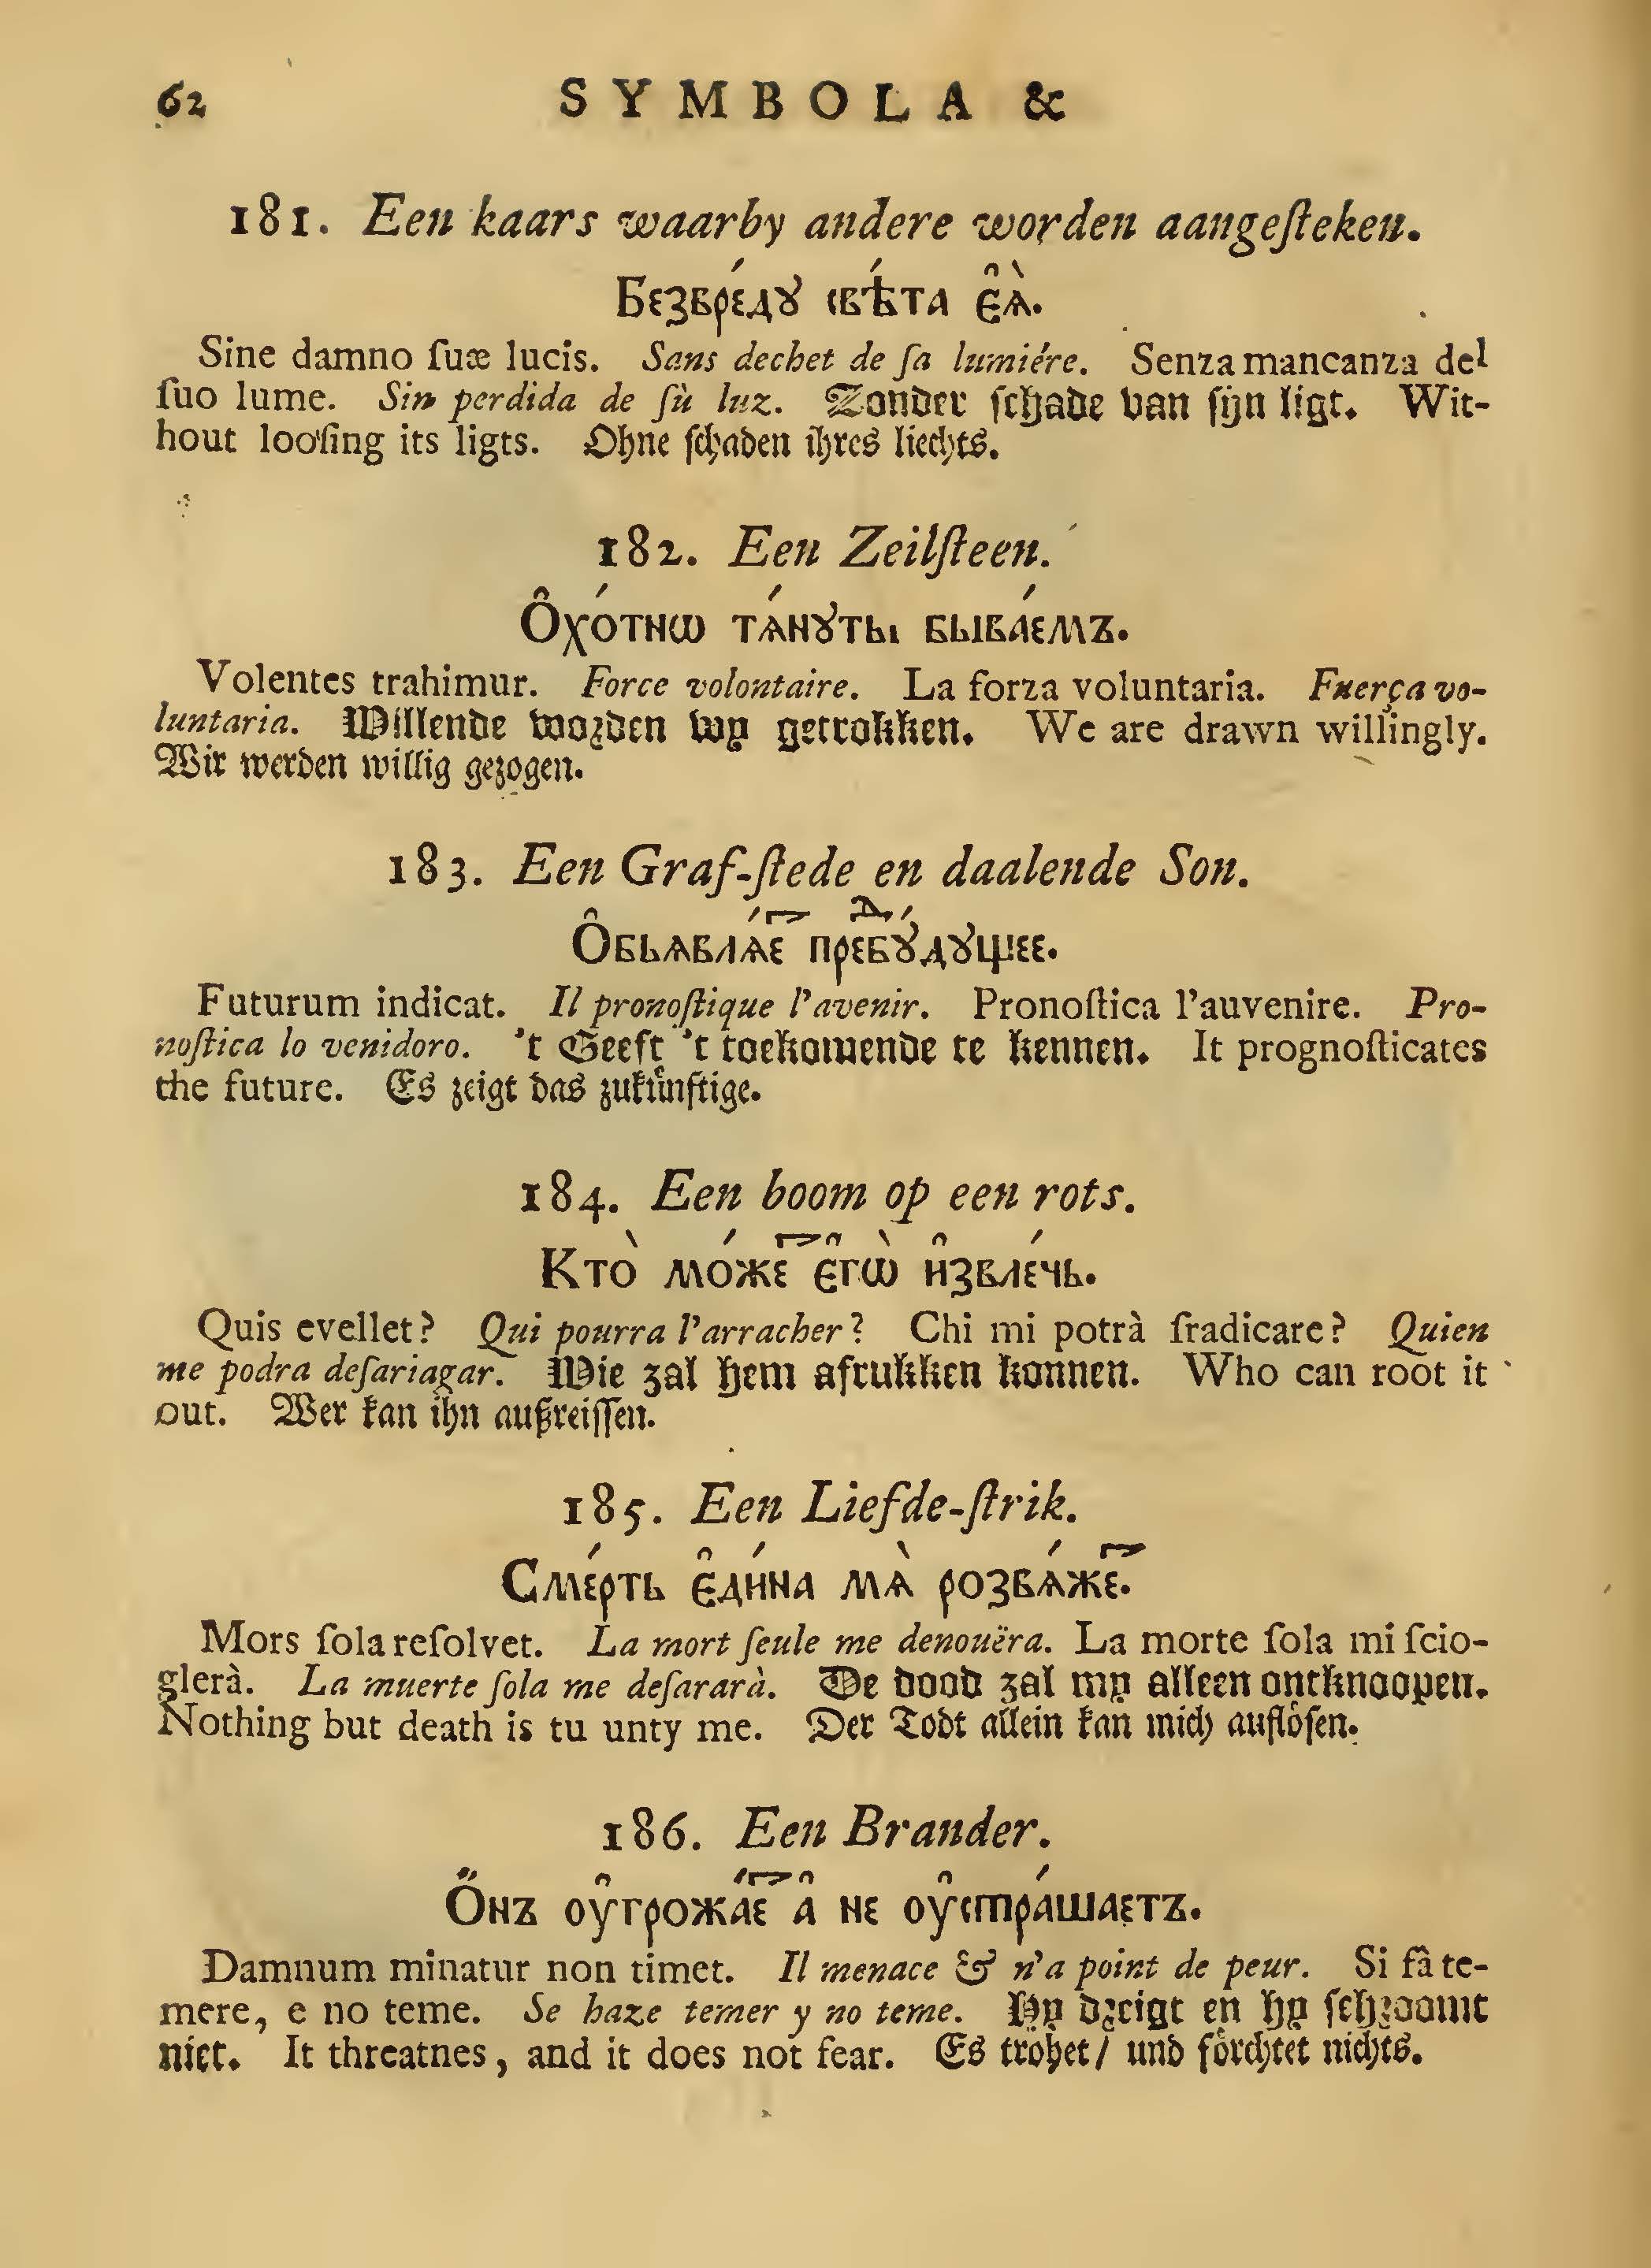 62 SYMBOLA &
181. Een kaars waarby andere worden aangeſteken.
Безвре́дꙋ свѣ́та є҆ѧ̀.
Sine damno ſuæ lucis. Sans dechet de ſa lumiére. Senza mancanza del
ſuo lume. Sin perdida de ſù luz. Zonder ſchade van ſijn ligt. Wit-
hout looſing its ligts. Ohne ſchaden ihres liechts.
182. Een Zeilſteen.
Ѻ҆хо́тнѡ тѧ́нꙋты быва́емъ.
Volentes trahimur. Force volontaire. La forza voluntaria. Fuerça vo-
luntaria. Willende worden wy getrokken. We are drawn willingly.
Wir werden willig gezogen.
183. Een Graf-ſtede en daalende Son.
Ѻ҆бьѧвлѧ́е пребꙋ́дꙋщее.
Futurum indicat. Il pronoſtique l'avenir. Pronoſtica l'auvenire. Pro-
noſtica lo venidoro. 't Geeft 't toekomende te kennen. It prognoſticates
the future. Es zeigt das zukuͤnftige.
184. Een boom op een rots.
Кто̀ мо́же є҆гѡ̀ и҆звле́чь.
Quis evellet? Qui pourra l'arracher? Chi mi potrà ſradicare? Quien
me podra deſariagar. Wie zal hem afrukken konnen. Who can root it
out. Wer kan ihn außreiſſen.
185. Een Liefde-ſtrik.
Сме́рть є҆ди́на мѧ̀ розвѧ́же.
Mors ſola reſolvet. La mort ſeule me denouëra. La morte ſola mi ſcio-
glerà. La muerte ſola me deſararà. De dood zal my alleen ontknoopen.
Nothing but death is tu unty me. Der Todt allein kan mich aufloͤſen.
186. Een Brander.
Ѻ҆́нъ оу҆грожа́е а҆ не оу҆стра́шаетъ.
Damnum minatur non timet. Il menace & n'a point de peur. Si fâ te-
mere, e no teme. Se haze temer y no teme. Hy dreigt en hy ſchroomt
niet. It threatnes, and it does not fear. Es troͤhet / und foͤrchtet nichts.